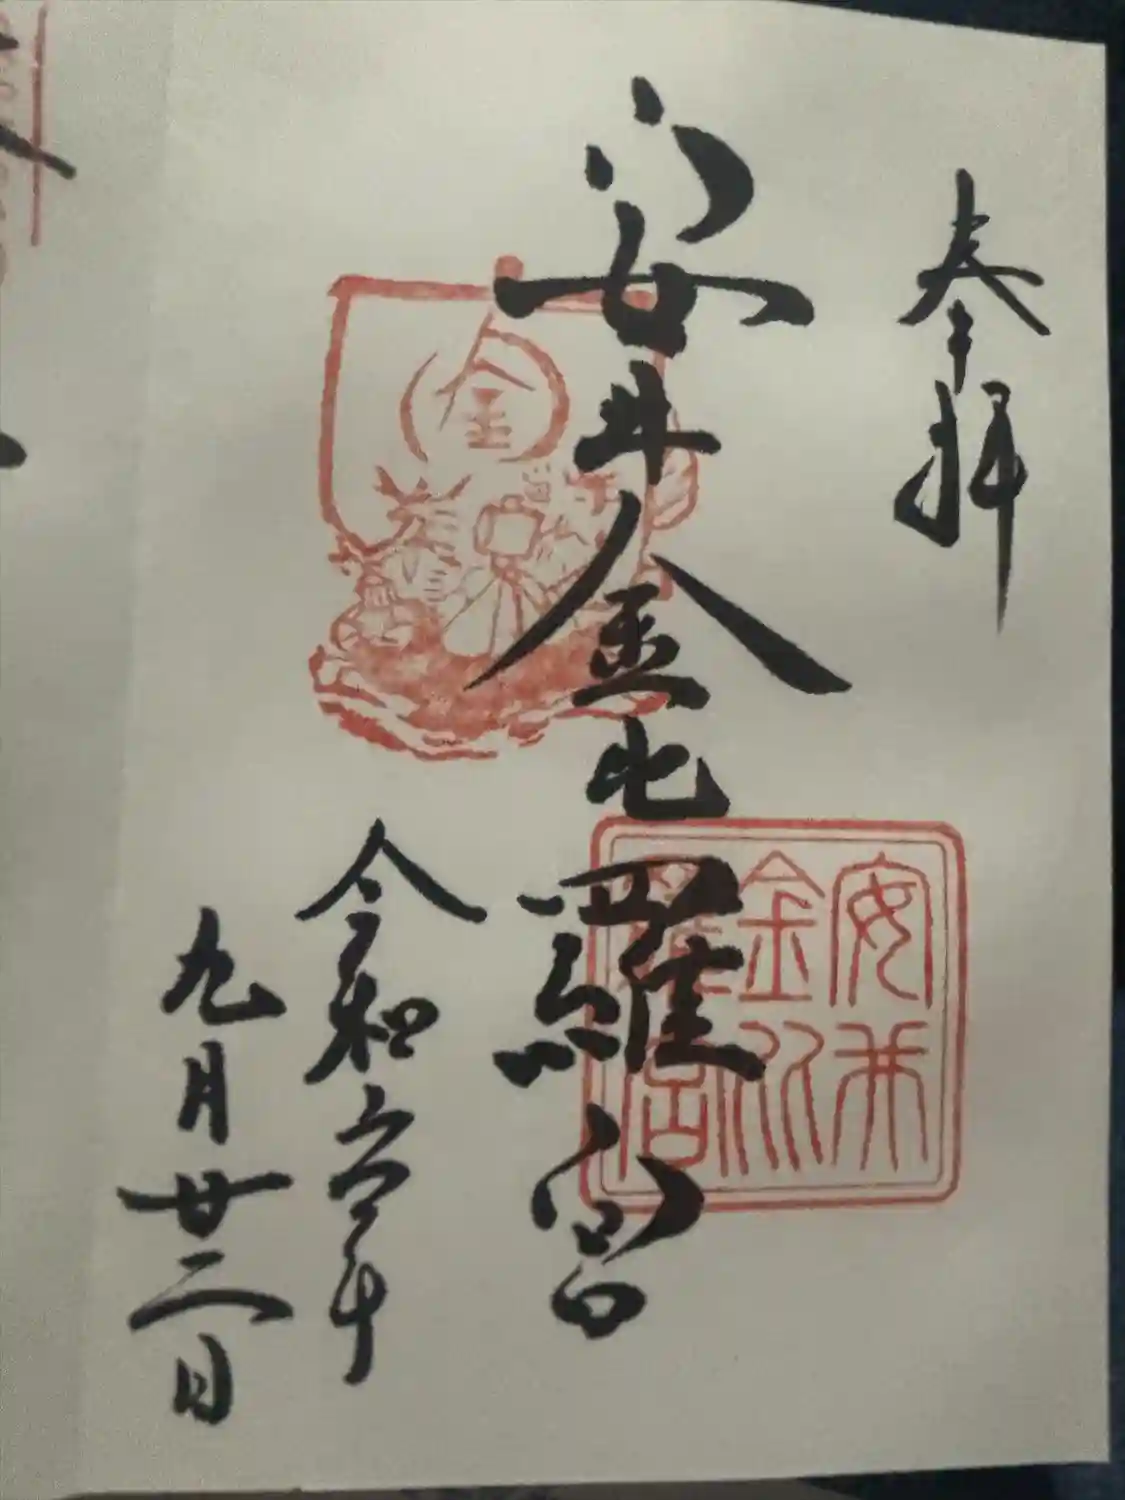 奉拝
安井金比羅宮
令和六年
九月廿二日
金
安井
金比
羅宮